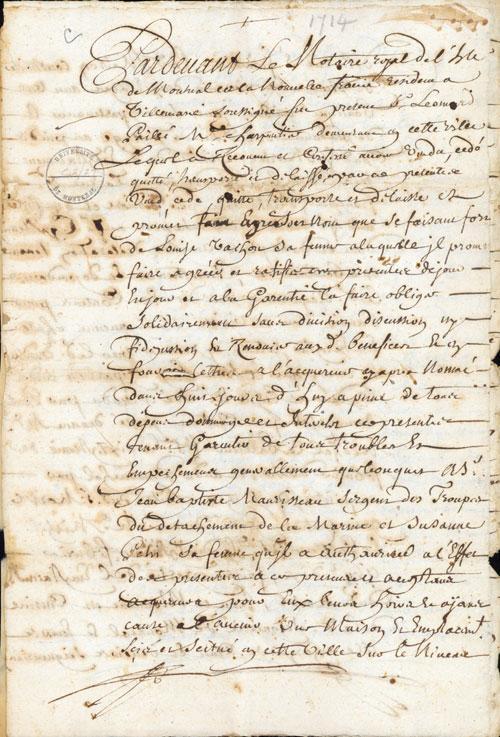 1714
Pardevant Le Notaire royal de l'Isle
de Montreal en la Nouvelle france Residant a
Villemarie Soussigné fut present Sr Leonard
Me Charpentier demeurant en cette Ville
Lequel a reconnu et Confessé avoir Vendu, cedé
quitté, transporté et delaissé, par ces presentes
Vend cede quitte, transporte et delaisse et
promet tant en son nom que se faisant fort
de Louise sa femme a laquelle jl promet
faire agréer et ratiffier ces presentes dejour
Enjour et a la Garentie la faire obliger
Solidairement sans division discussion ny
fidejussion Renonçant aux d. benefices
a l'acquereur cy apres Nommé
dans huy a peine de tous
depens dommages et Interests
Garentir de tous troubles Et
Empeschemens generallement quelconques
Jean baptiste Maurisseau Sergent des Troupes
du detachement de la Marine et Susanne
Petit Sa femme qu'jl a authaurisée a l'Effet
des presentes a ce presents et acceptans
acquereurs pour Eux leurs hoirs et ayans
cause a l'avenir Une Maison Et Emplacemt
Scis et Scitué en cette Ville Sur le Niveau
UNIVERSITÉ DE MONTRÉAL